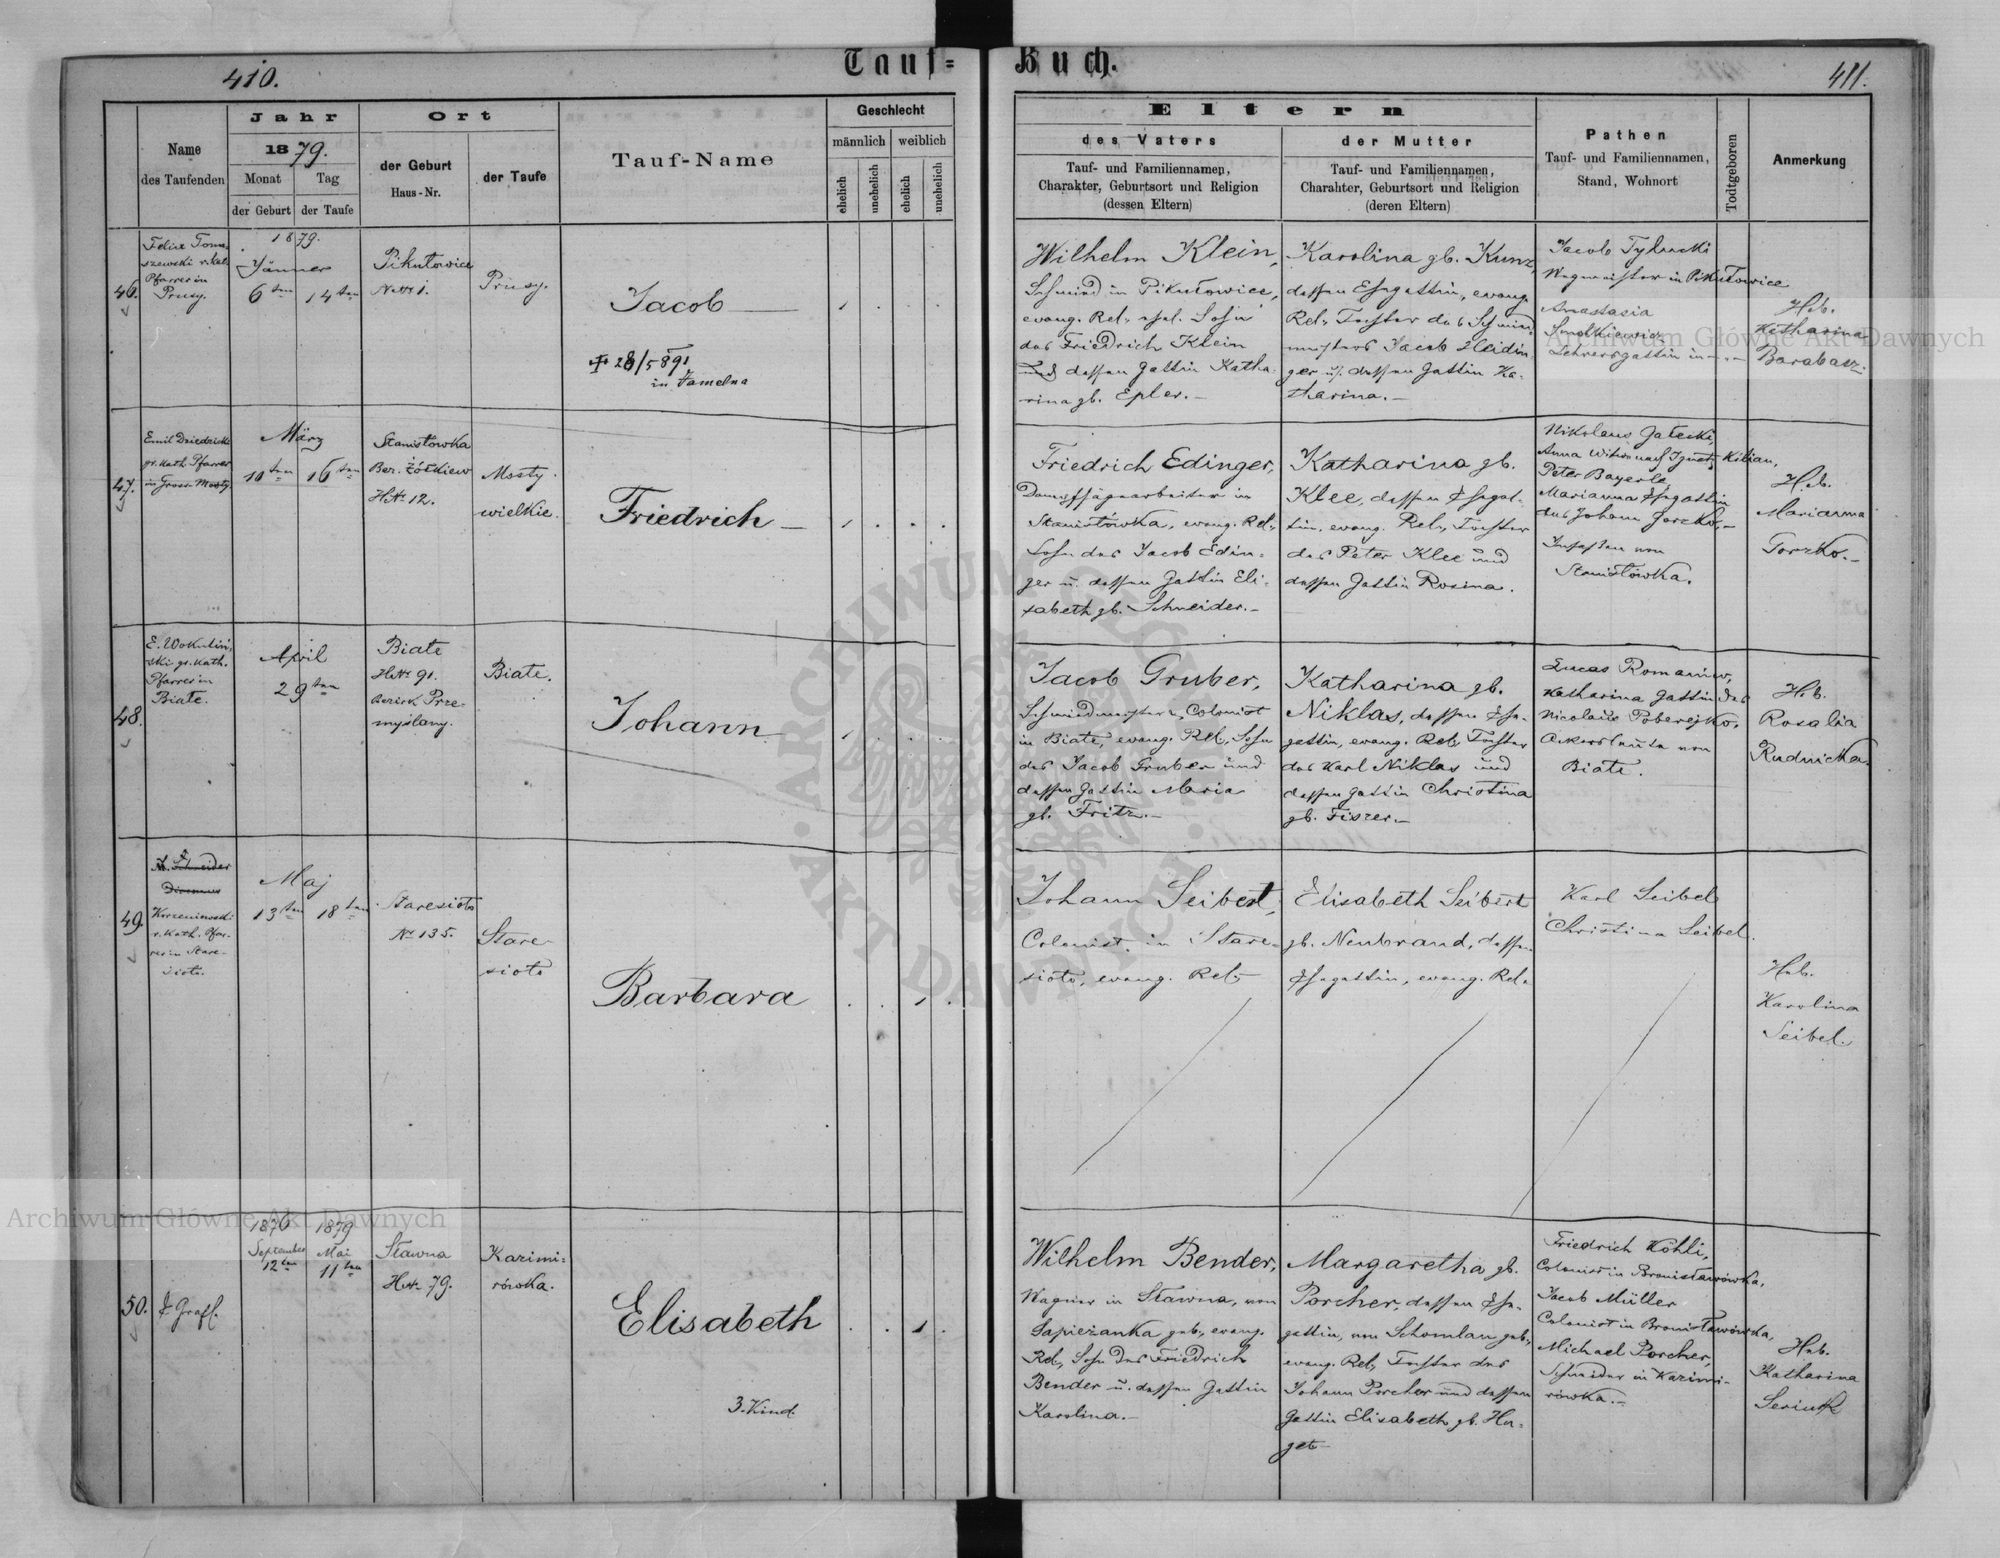 410.
Tauf-
Buch.
411.
Name
des Taufenden
Jahr
1879.
Monat
Tag
der Geburt
der Taufe
Ort
der Geburt
Haus-Nr.
der Taufe
Tauf-Name
Geschlecht
männlich
weiblich
ehelich
unehelich
ehelich
unehelich
Eltern
des Vaters
Tauf- und Familiennamen,
Charakter, Geburtsort und Religion
(dessen Eltern)
der Mutter
Tauf- und Familiennamen,
Charakter, Geburtsort und Religion
(deren Eltern)
Pathen
Tauf- und Familiennamen,
Stand, Wohnort
Todtgeboren
Anmerkung
46.
Felix Toma-
szewski r. kat.
Pfarrer in
Prusy.
1879.
Jänner
6ten
14ten
Pikułowice
N. 1.
Prusy.
Jacob
28/5 891
in
Wilhelm Klein,
Schmied in Pikułowice,
evang. Rel., ehel. Sohn
des Friedrich Klein
und dessen Gattin Katha-
rina gb. Epler.-
Karolina gb. Kunz,
dessen Ehegattin, evang.
Rel., Tochter des Schmied-
meisters Jacob Heidin-
ger u. dessen Gattin Ka-
tharina.-
Jacob
Wagmeister in Pikułowice
Anastasia
Smolkiewicz
Lehrersgattin in
Heb.
Katharina
Barabasz
47.
Emil
gr. kath. Pfarrer
in Gross Mosty.
März
10ten
16ten
Stanisłowka
Bez. Żółkiew
HN. 12.
Mosty
wielkie.
Friedrich
Friedrich Edinger,
Dampfsägearbeiter in
Stanisłówka, evang. Rel.,
Sohn des Jacob Edin-
ger u. dessen Gattin Eli-
sabeth gb. Schneider.-
Katharina gb.
Klee, dessen Ehegat-
tin, evang. Rel., Tochter
des Peter Klee und
dessen Gattin Rosina.
Nikolaus Jałecki,
Anna Witwe nach Ignatz Kilian,
Peter Bayerle,
Marianna Ehegattin
des Johann
Insassen von
Stanisłówka.
Heb.
Marianna
Gorzko.-
48.
E.
ski gr. kath.
Pfarrer in
Białe.
April
29ten
Białe
HN. 91.
Bezirk Prze-
myślany.
Białe.
Johann
Jacob Gruber,
Schmiedmeister, Colonist
in Białe, evang. Rel., Sohn
des Jacob Gruber und
dessen Gattin Maria
gb. Fritz.-
Katharina gb.
Niklas, dessen Ehe-
gattin, evang. Rel., Tochter
des Karl Niklas und
dessen Gattin Christina
gb. Fiszer.-
Lucas Romaniw,
Katharina Gattin des
Nicolaus Poberejko,
Ackersleute von
Białe.
Heb.
Rosalia
Rudnicka.
49.
Korzeniowski
r. kath. Pfar-
rer in Stare-
sioło.
Maj
13ten
18ten
Staresioło
N. 135.
Stare-
sioło
Barbara
Johann Seibert,
Colonist in Stare-
sioło, evang. Rel.
Elisabeth Seibert
gb. Neubrand, dessen
Ehegattin, evang. Rel.
Karl Seibel
Christina Seibel.
Heb.
Karolina
Seibel.
50.
1876
September
12ten
1879
Mai
11ten
Sławna
HN. 79.
Kazimi-
rówka.
Elisabeth
3. Kind.
Wilhelm Bender,
Wagner in Sławna, von
Sapieżanka geb., evang.
Rel., Sohn des Friedrich
Bender u. dessen Gattin
Karolina.-
Margaretha gb.
Porcher, dessen Ehe-
gattin, von Schomlau geb.,
evang. Rel., Tochter des
Johann Porcher und dessen
Gattin Elisabeth gb. Hu-
get-
Friedrich Köhli,
Colonist in Bronisławówka,
Jacob Müller
Colonist in Bronisławówka,
Michael Porcher,
Schneider in Kazimi-
rówka.-
Heb.
Katharina
Archiwum Główne Akt Dawnych
Archiwum Główne Akt Dawnych
ARCHIWUM GŁÓWNE AKT DAWNYCH